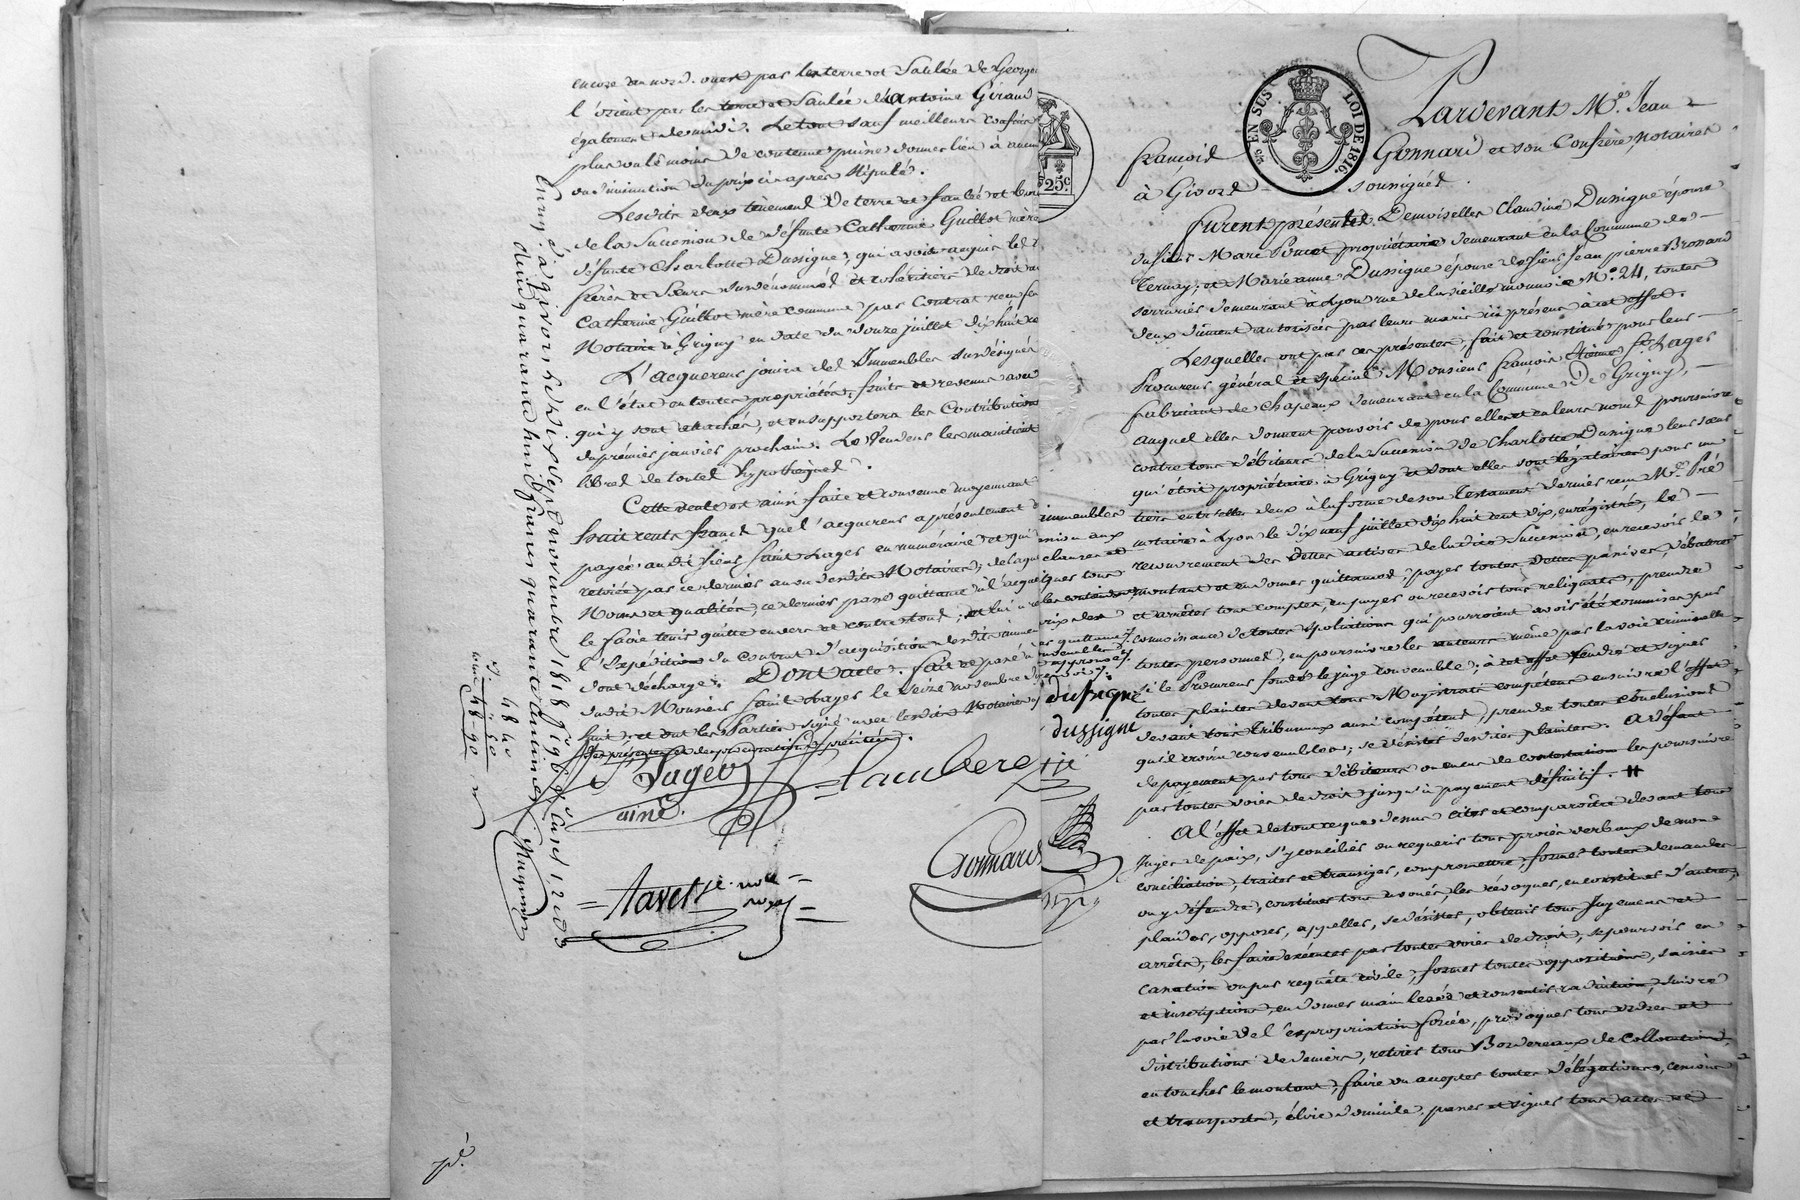 encore du nord. ouest par les terre et Saulée de George
l'orient par les terre et Saulée de Antoine Giraud
également de midi. Le tout sauf meilleurs confins
plus ou le moins de contenue puisse donner lieu à aucun
ou diminution du prix ci après stipulé.
Lesdits deux tènement de terre et saulée et
de la Succession de défunte Catherine Guillot mère
défunte Charlotte Dussigne, qui avoit acquis les
frères et Sœurs Susdénommés et cohéritiers de droit
Catherine Guillot mère commune par Contrat reçu
Notaire à Grigny en date du douze juillet dix huit
L'acquereur jouira des Immeubles susdésignés
en l'état en toutes propriétés, fruits et revenus avec
qui y sont attachés, et en supportera les Contributions
du premier janvier prochain. Le Vendeur les maintient
libres de toutes hypothèques.
Cette vente est ainsi faite et convenue moyennant
huit cents francs que l'acquereur a présentement
payée au dit Sieur Saint Lages en numéraire et qui
retirée par ce dernier au vu desdits Notaires; de laquelle
Noms et qualités, ce dernier passe quittance à l'acquereur
le faire tenir quitte envers et contre tous; et lui a
l'Expédition du Contrat d'acquisition desdits immeubles
dont décharge. Dont acte. fait et passé
dudit Monsieur Saint Lages le seize novembre
huit, et ont les Parties signé avec lesdits Notaires
St Lages
ainé.
Tavel jc. not.
royal
Gonnard
Enreg. à givors le dix sept novembre 1818 f° 96 v° Cases 1, 2 et 3
Reçu quarante huit francs quarante centimes
48 40
48 90
25c
immeubles
dussigne
dussigne
EN SUS LOI DE 1816.
Pardevant M.es Jean
françois Gonnard et son Confrère, notaires
à Givors soussignés.
furent présentes Demoiselles Claudine Dussigne épouse
du Sieur Marc Poncet propriétaire demeurant en la Commune de
Ternay; et Marie anne Dussigne épouse de Sieur Jean pierre Brossard
serrurier demeurant à Lyon rue de la vieille monnoie N.° 24, toutes
deux dûment autorisées par leurs maris ici présens à cet effet.
Lesquelles ont par ces présentes fait et constitué pour leur
Procureur général et spécial Monsieur françois Lages
fabricant de chapeaux demeurant en la Commune de Grigny,
auquel elles donnent pouvoir de pour elles et en leurs noms poursuivre
contre tous débiteurs de la Succession de Charlotte Dussigne leur sœur
qui étoit propriétaire à Grigny et dont elles sont légataires pour un
tiers entr'elles deux à la forme de son Testament dernier reçu M.e Pré
notaire à Lyon le dix neuf juillet dix huit cent dix, enrégistré, le
recouvrement des dettes actives de ladite Succession, en recevoir le
montant et en donner quittances; payer toutes dettes passives, débattre
et arrêter tous comptes, en payer ou recevoir tous reliquats, prendre
connoissance de toutes spoliations qui pourroient avoir été commises par
toutes personnes, en poursuivre les auteurs même par la voie criminelle
si le Procureur fondé le juge convenable; à cet effet rendre et signer
toutes plaintes devant tous Magistrats compétens ensuivre l'effet
devant tous Tribunaux aussi compétens, prendre toutes conclusions
qu'il croira convenables; se désister desdites plaintes. A défaut
de payement par tous débiteurs ou en cas de contestation les poursuivre
par toutes voies de droit jusqu'à payement définitif. #
A l'effet de tout ce que dessus citer et comparoître devant tous
Juges de paix, s'y concilier ou requerir tous procès verbaux de non
conciliation, traiter et transiger, compromettre, former toutes demandes
ou y défendre, constituer tous avoués, les révoquer, en constituer d'autres,
plaider, opposer, appeller, se désister, obtenir tous Jugemens et
arrêts, les faire exécuter par toutes voies de droit, se pourvoir en
cassation ou par requête civile, former toutes oppositions, saisies
et inscriptions, en donner main levées et consentir radiations, suivre
par la voie de l'expropriation forcée, provoquer tous ordres et
distributions de deniers, retirer tous Bordereaux de Collocations,
en toucher le montant, faire ou accepter toutes délégations, cessions
et transports, élire domicile, passer et signer tous actes et